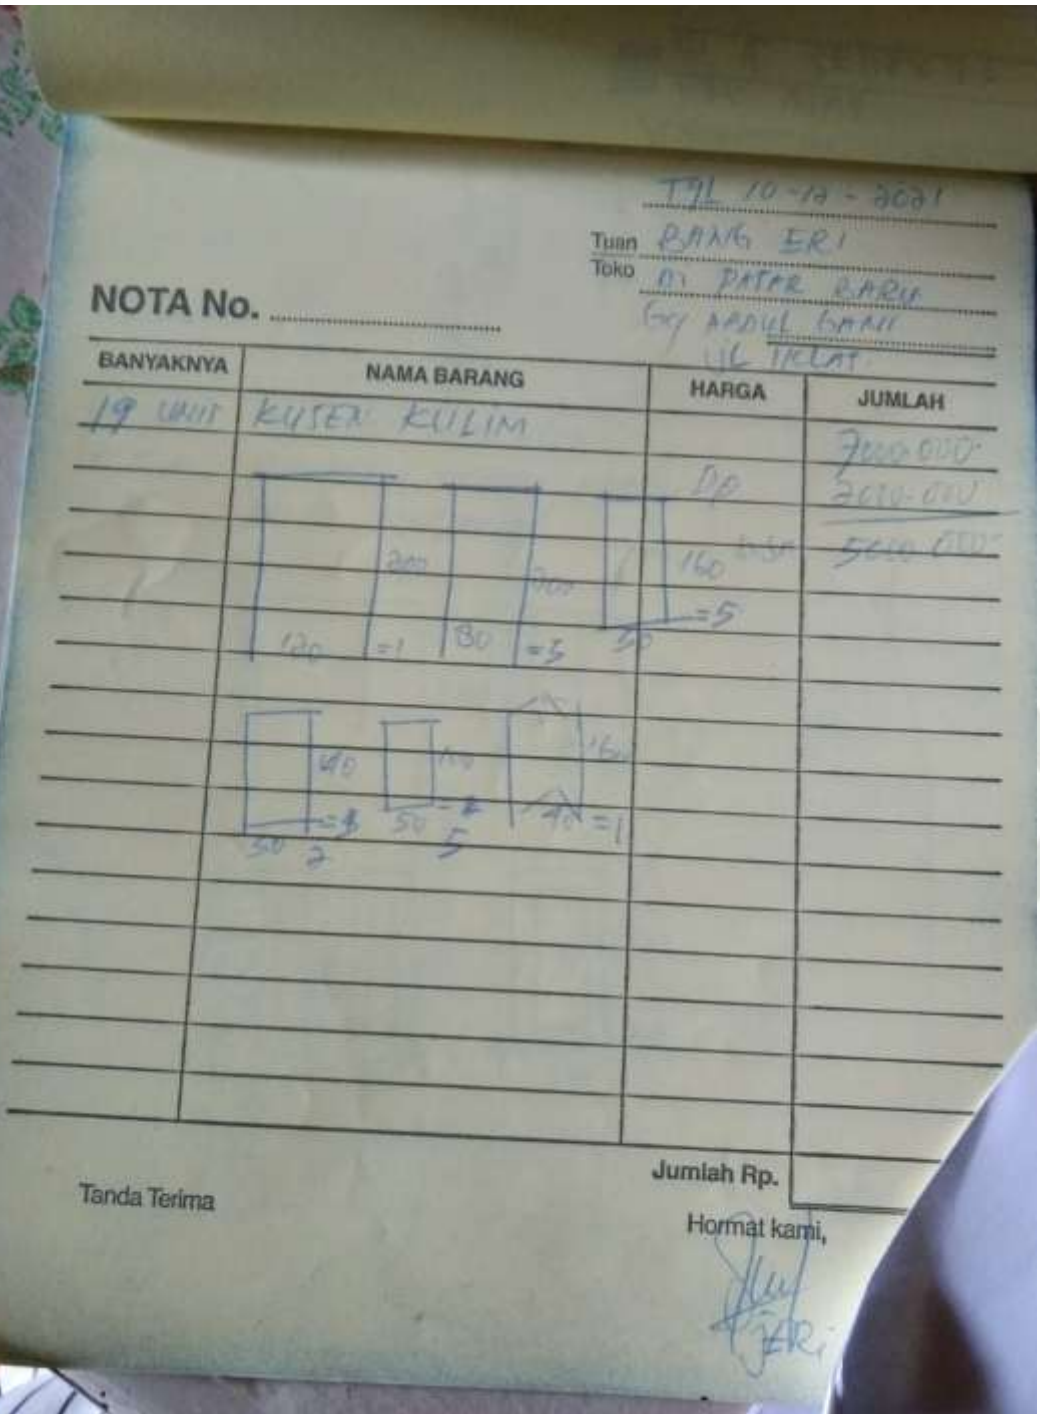 TGL 10-12-2021
Tuan BANG ERI
Toko DI PASAR BARU
NOTA No.
Gg ABDUL GANI
BANYAKNYA NAMA BARANG HARGA JUMLAH
19 UNIT KUSEN KULIM 7000.000
DP 2000.000
5000.000
200 200 160
120 =1 80 =5 50 =5
50 2
50 5
40 =1
Jumlah Rp.
Tanda Terima
Hormat kami,
JERI